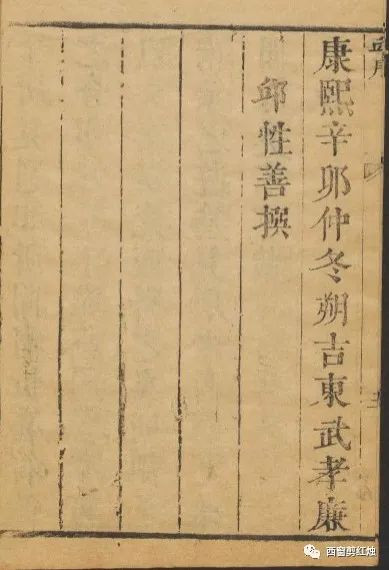 康熙辛卯仲冬朔吉東武孝廉
邱性善撰
西窗剪红烛